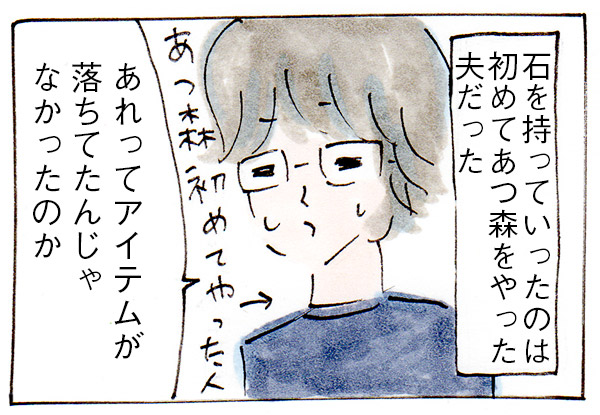 石を持っていったのは
初めてあつ森をやった
夫だった
あつ森初めてやった人
→
あれってアイテムが
落ちてたんじゃ
なかったのか